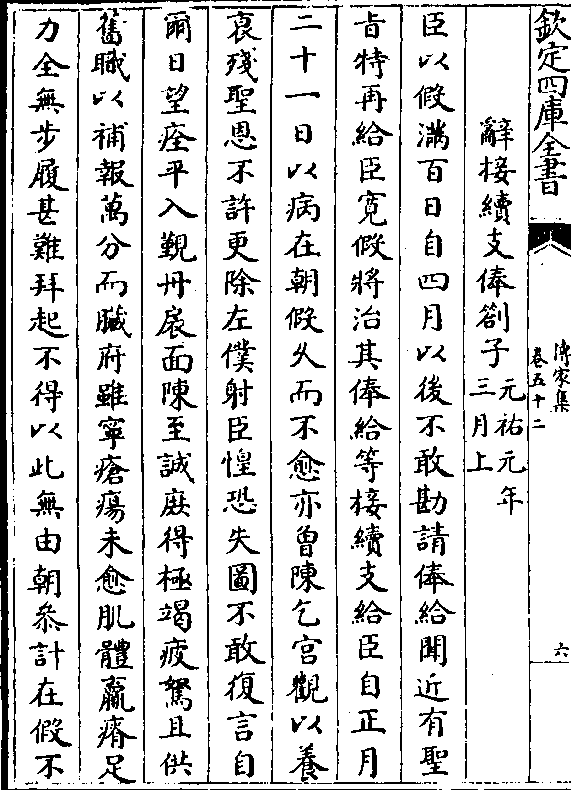 欽定四庫全書
傳家集
卷五十二
六
辭接續支俸劄子元祐元年
三月上
臣以假滿百日自四月以後不敢勘請俸給聞近有聖
旨特再給臣寛假將治其俸給等接續支給臣自正月
二十一日以病在朝假乆而不愈亦曾陳乞宫觀以養
衰殘聖恩不許更除左僕射臣惶恐失圖不敢復言自
爾日望痊平入覲丹扆面陳至誠庶得極竭疲駑且供
舊職以補報萬分而臟府雖寧瘡瘍未愈肌體羸瘠足
力全無步履甚難拜起不得以此無由朝叅計在假不